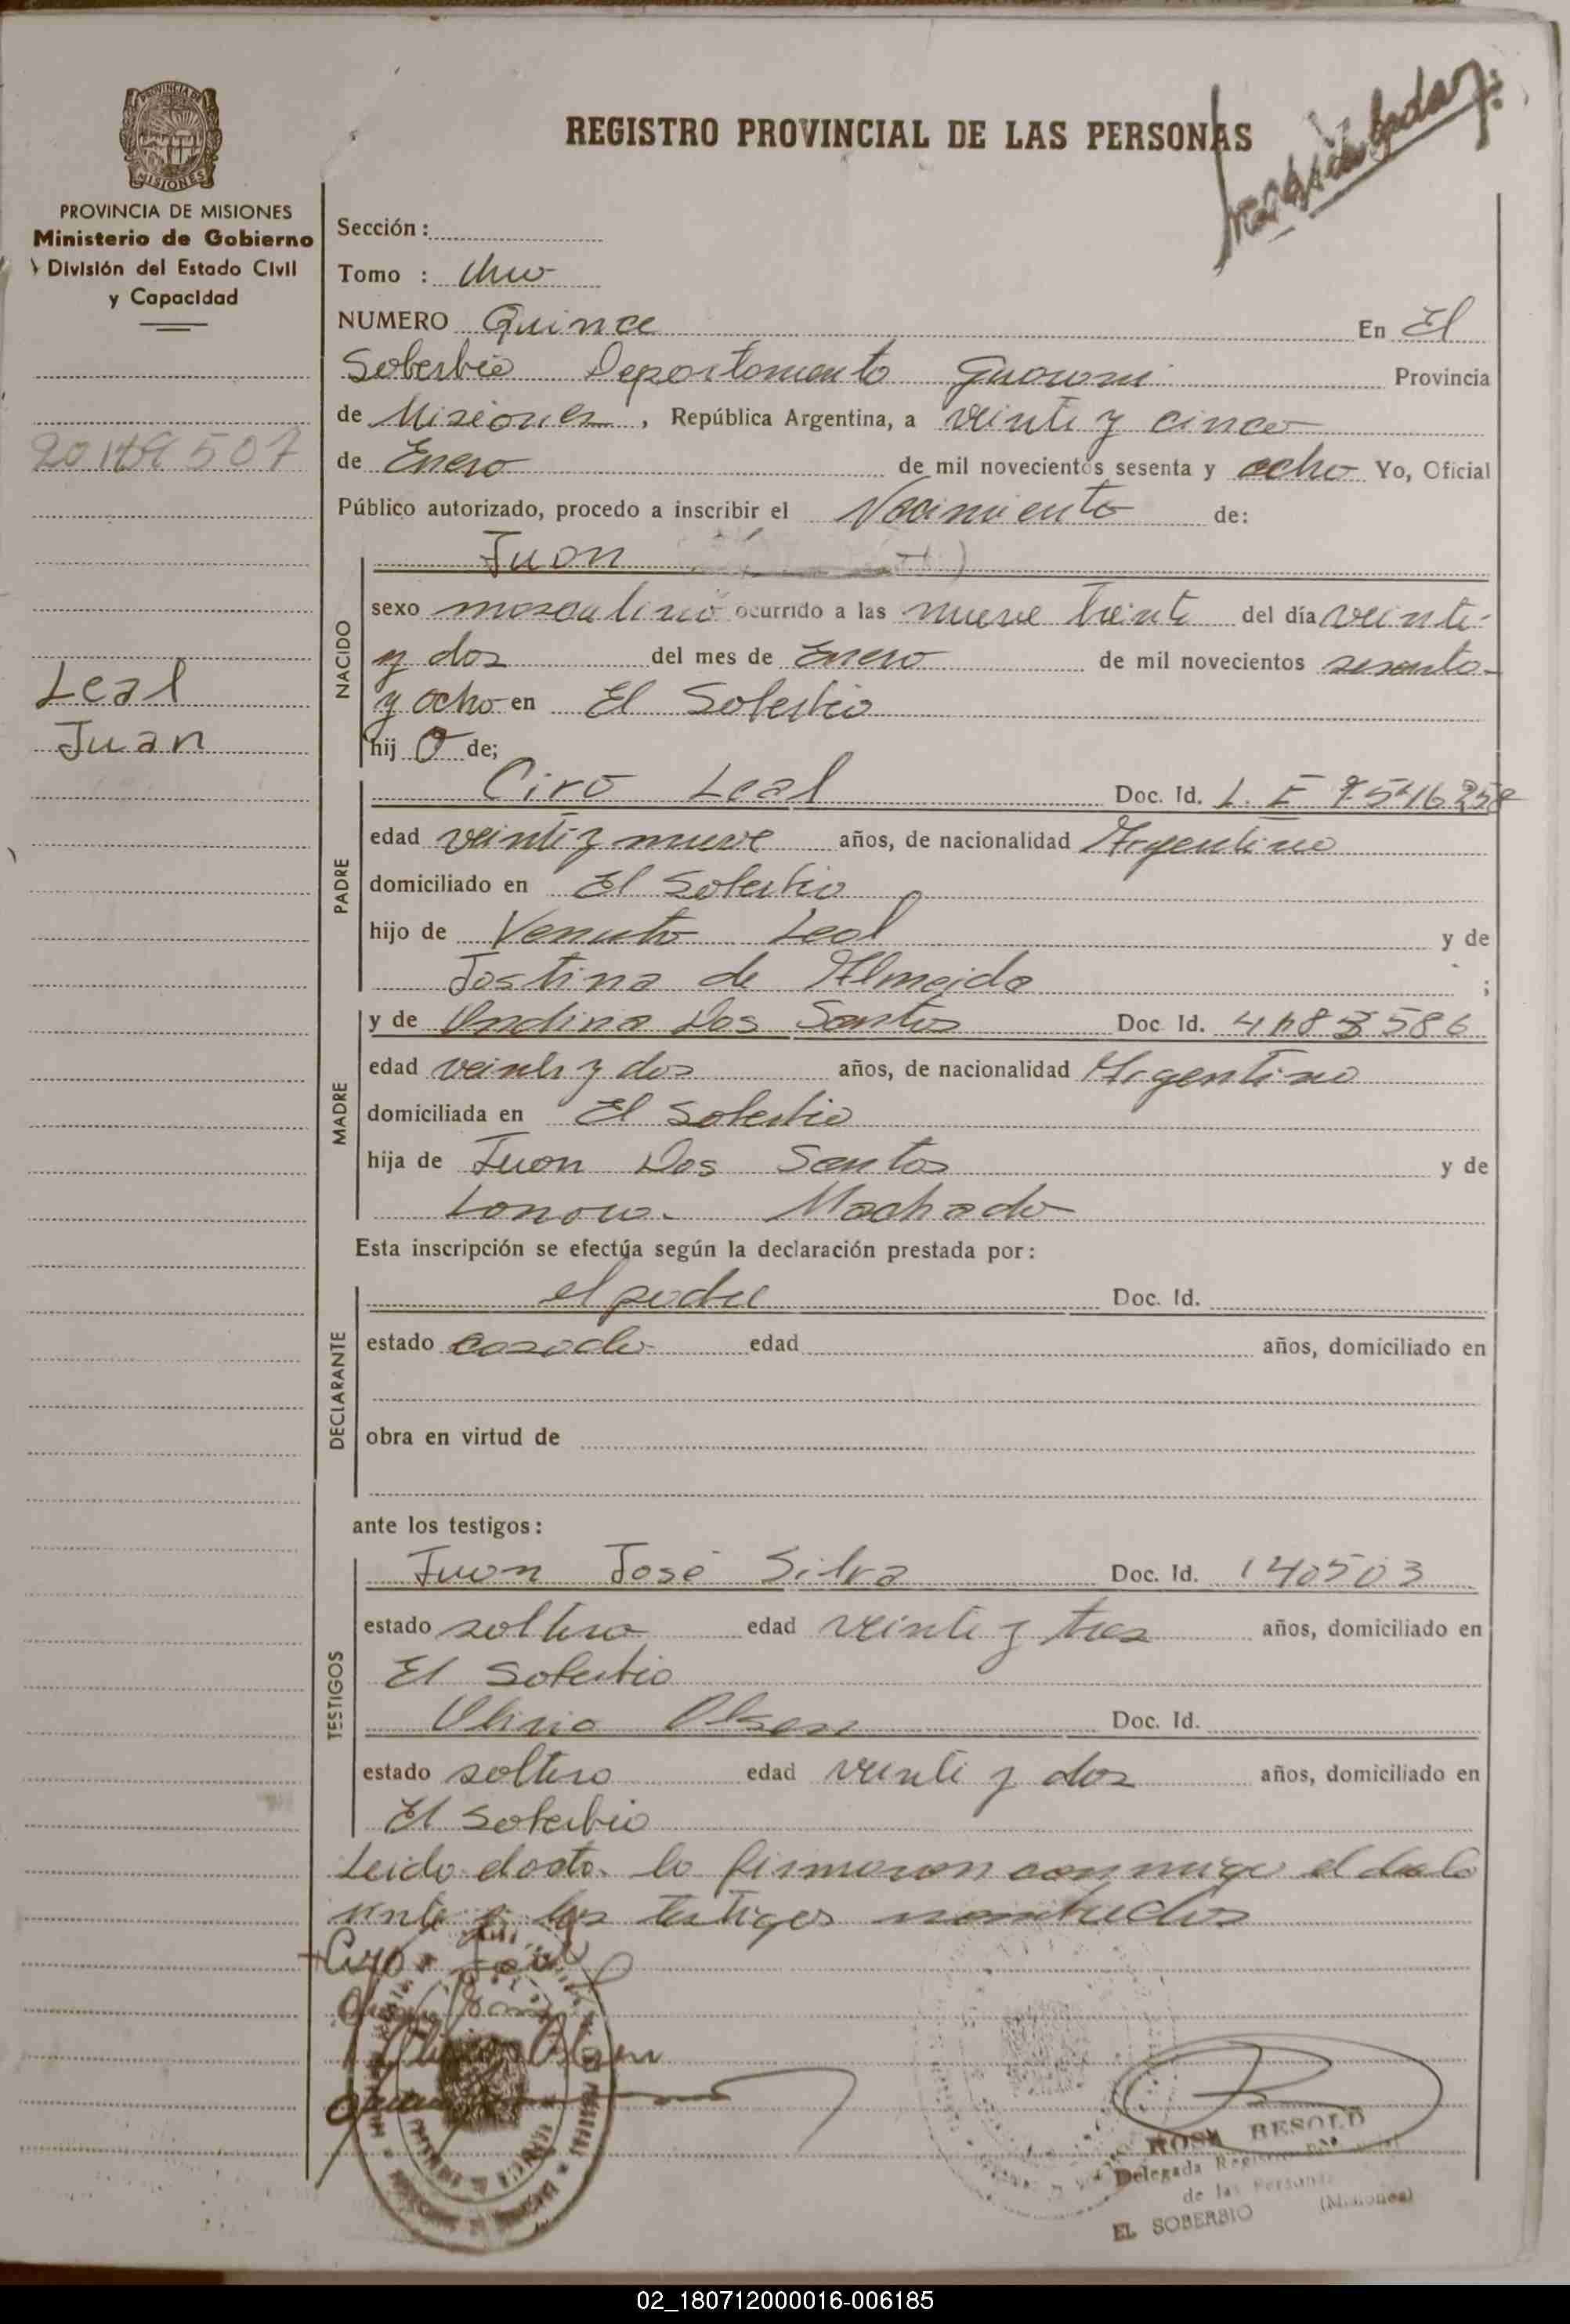 PROVINCIA DE MISIONES
MISIONES
PROVINCIA DE MISIONES
Ministerio de Gobierno
División del Estado Civil
y Capacidad
507
Leal
Juan
REGISTRO PROVINCIAL DE LAS PERSONAS
Sección :
Tomo : Uno
NUMERO Quince En El
Soberbio Departamento Guarani Provincia
de Misiones, República Argentina, a veinti y cinco
de Enero de mil novecientos sesenta y ocho Yo, Oficial
Público autorizado, procedo a inscribir el Nacimiento de:
NACIDO
Juan
sexo masculino ocurrido a las nueve treinta del día veinti-
y dos del mes de Enero de mil novecientos sesenta
y ocho en El Soberbio
hij o de;
PADRE
Ciro Leal Doc. Id. L. E 7546258
edad veinti y nueve años, de nacionalidad Argentino
domiciliado en El Soberbio
hijo de Venuto Leal y de
Jostina de Almeida ;
MADRE
y de Ondina Dos Santos Doc Id.
edad veinti y dos años, de nacionalidad Argentina
domiciliada en El Soberbio
hija de Juan Dos Santos y de
Machado
Esta inscripción se efectúa según la declaración prestada por :
DECLARANTE
el padre Doc. Id.
estado casado edad años, domiciliado en
obra en virtud de
ante los testigos :
TESTIGOS
Juan José Silva Doc. Id. 140503
estado soltero edad veinti y tres años, domiciliado en
El Soberbio
Olivio Olsen Doc. Id.
estado soltero edad veinti y dos años, domiciliado en
El Soberbio
Leido el acta lo firmaron conmigo el decla
rante y los testigos nombrados
Ciro Leal
Olivio Olsen
ROSA BESOLD
Delegada Registro Provincial
de las Personas
EL SOBERBIO (Misiones)
02_180712000016-006185